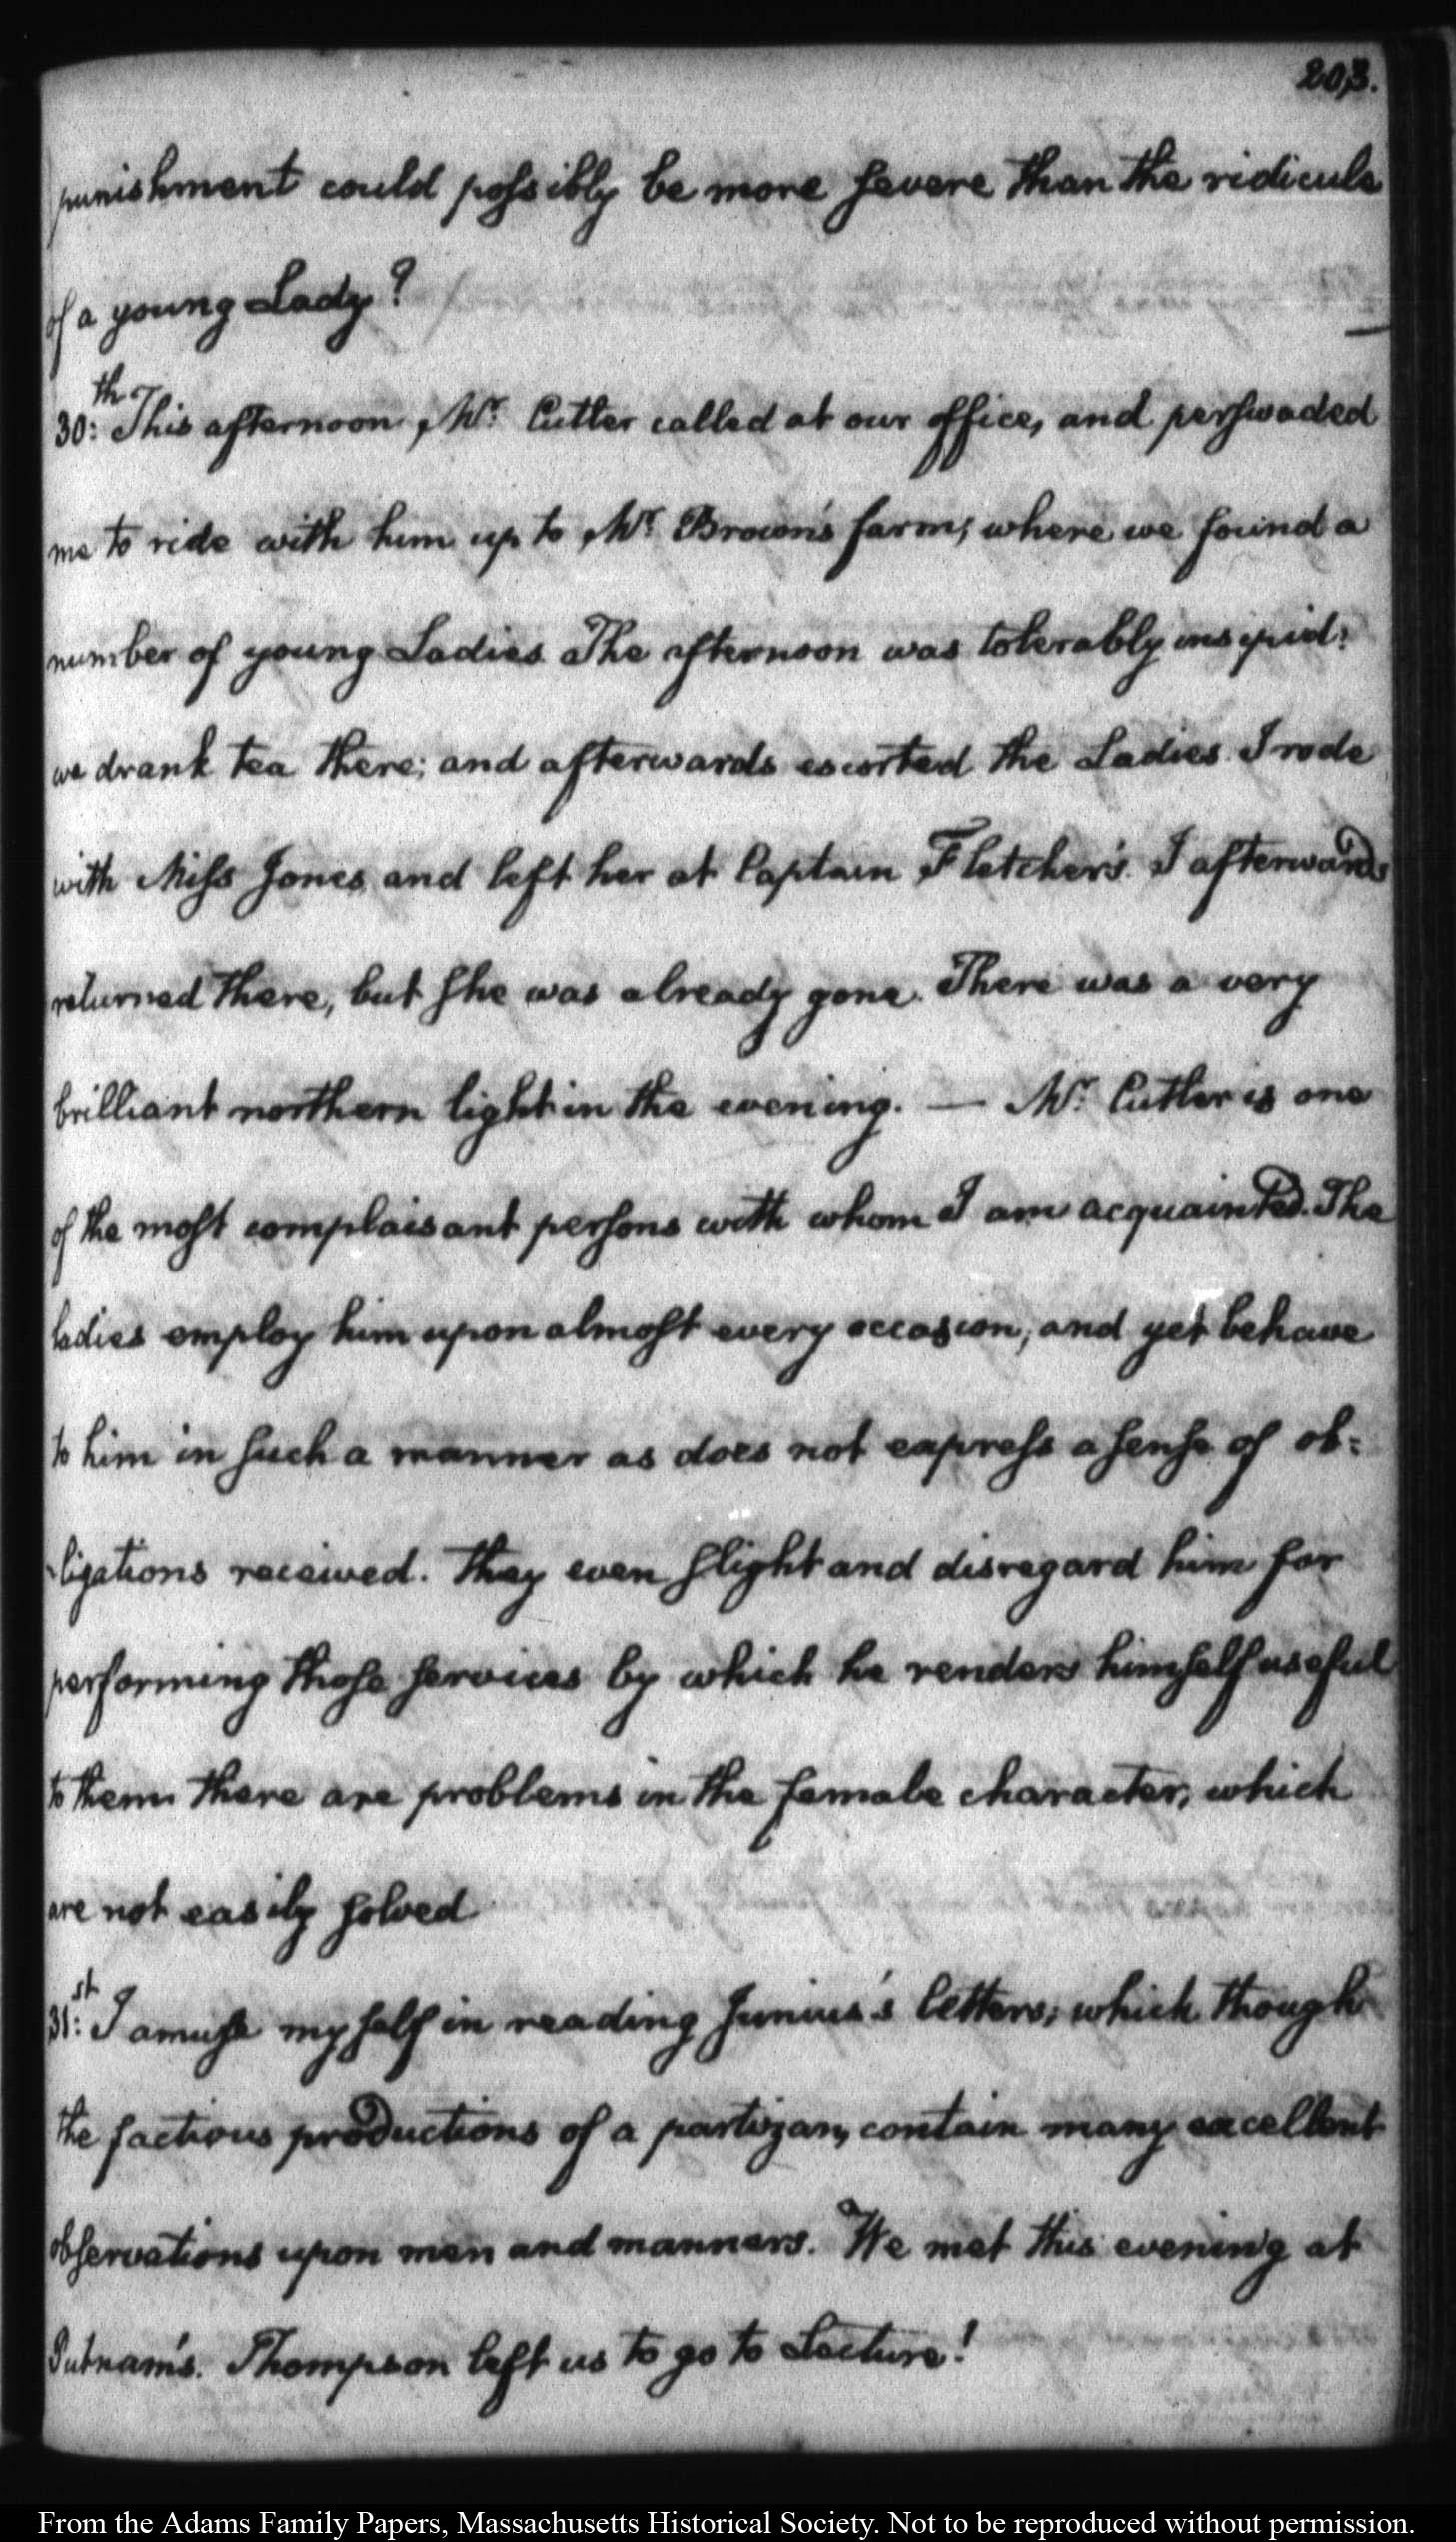 203.
punishment could possibly be more severe than the ridicule
of a young Lady?
30:th This afternoon, Mr. Cutler called at our office, and perswaded
me to ride with him up to Mr. Brown's farm, where we found a
number of young Ladies. The afternoon was tolerably insipid:
we drank tea there; and afterwards escorted the Ladies. I rode
with Miss Jones, and left her at Captain Fletcher's. I afterwards
returned there, but she was already gone. There was a very
brilliant northern light in the evening. — Mr. Cutler is one
of the most complaisant persons with whom I am acquainted. The
ladies employ him upon almost every occasion, and yet behave
to him in such a manner as does not express a sense of ob=
-ligations received. They even slight and disregard him for
performing those services by which he renders himself useful
to them there are problems in the female character, which
are not easily solved
31:st I amuse myself in reading Junius's letters; which though
the factious productions of a partizan, contain many excellent
observations upon men and manners. We met this evening at
Putnam's. Thompson left us to go to Lecture!
From the Adams Family Papers, Massachusetts Historical Society. Not to be reproduced without permission.